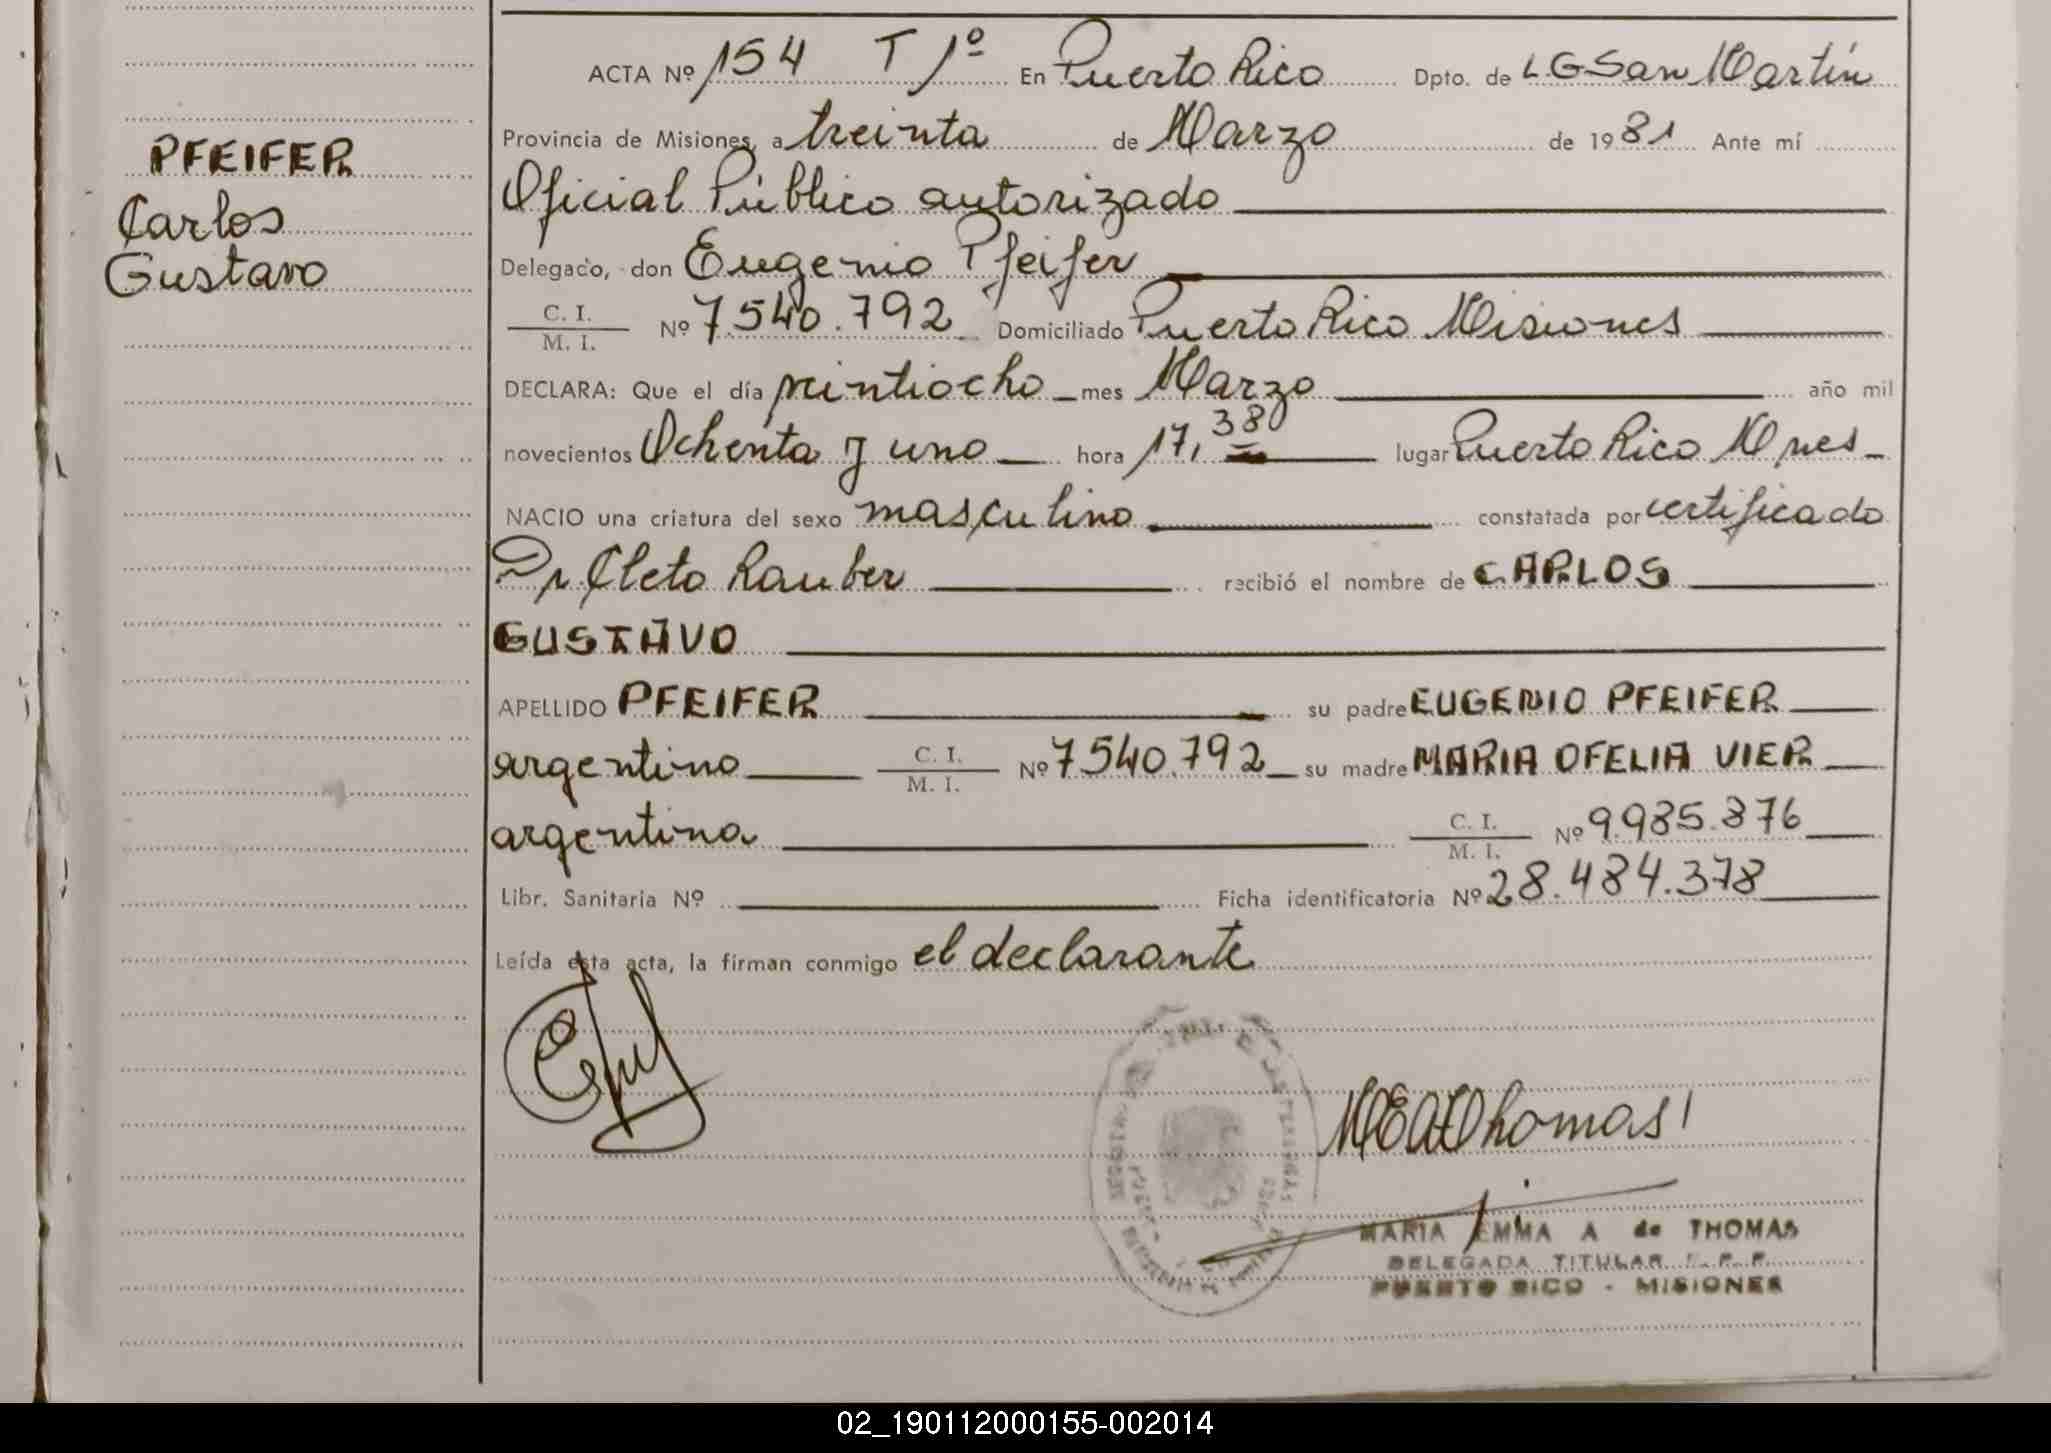 ACTA Nº 154 T 1º En Puerto Rico Dpto. de L G San Martín
Provincia de Misiones, a treinta de Marzo de 1981 Ante mí
PFEIFER
Oficial Público autorizado
Carlos
Delegado, don Eugenio Pfeifer
Gustavo
C. I.
M. I. Nº 7540.792 Domiciliado Puerto Rico Misiones
DECLARA: Que el día veintiocho mes Marzo año mil
novecientos Ochenta y uno hora 17,38 lugar Puerto Rico Mnes
NACIO una criatura del sexo masculino constatada por certificado
Dr. Cleto Rauber recibió el nombre de CARLOS
GUSTAVO
APELLIDO PFEIFER su padre EUGENIO PFEIFER
argentino C. I.
M. I. Nº 7540.792 su madre MARIA OFELIA VIER
argentina C. I.
M. I. Nº 9.985.876
Libr. Sanitaria Nº Ficha identificatoria Nº 28.484.378
Leída esta acta, la firman conmigo el declarante
MEAThomas
MARIA EMMA A de THOMAS
DELEGADA TITULAR R. P. P.
PUERTO RICO - MISIONES
02_190112000155-002014